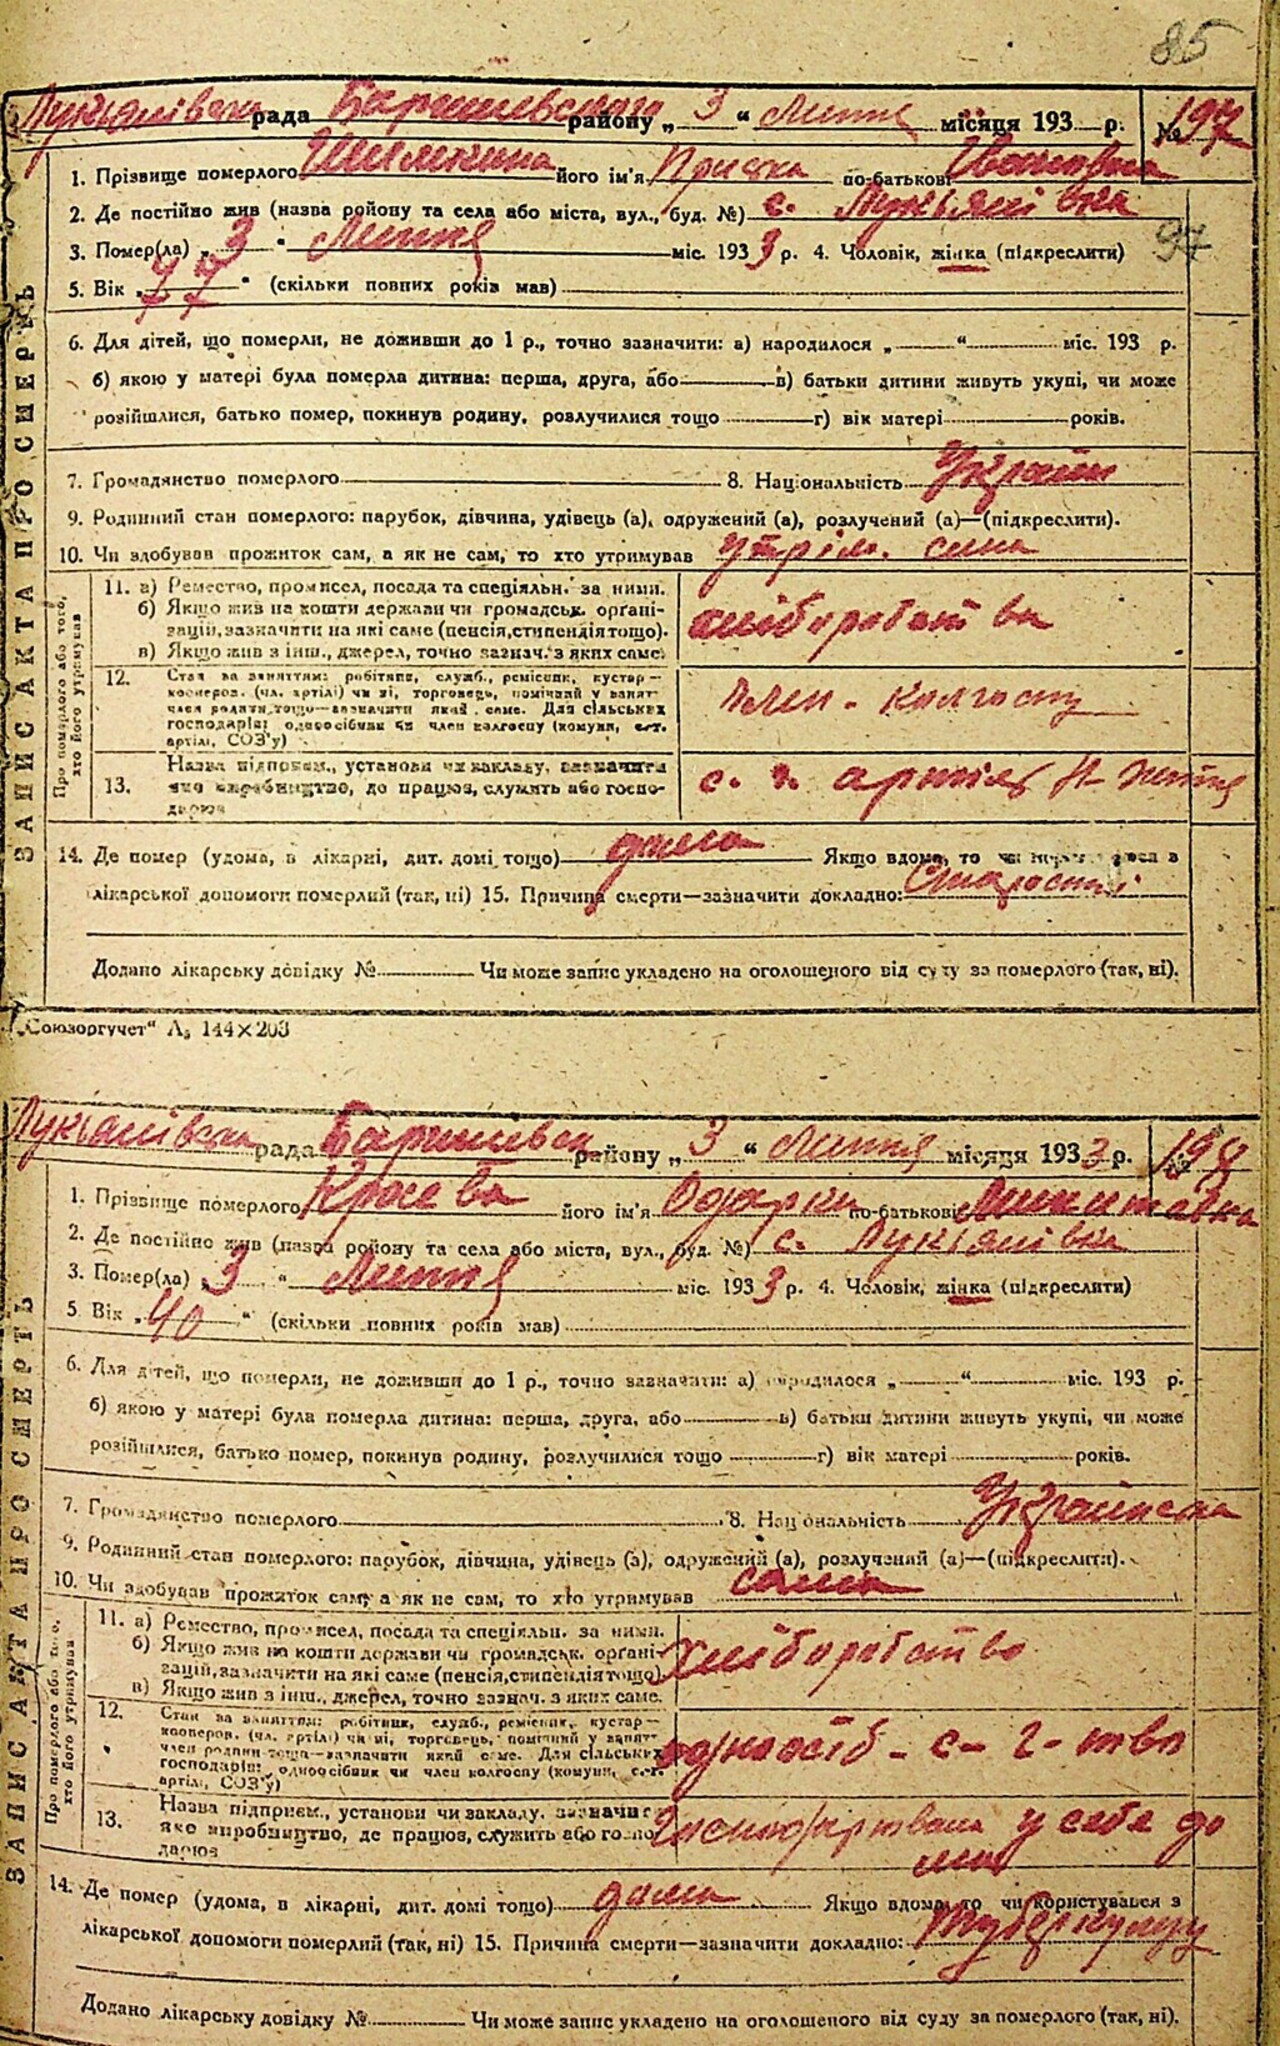 85
Лукьянівська рада Баришевського району „ 3 “ Липня місяця 193 р. № 197
1. Прізвище померлого Шимкина його ім'я Пріська по-батькові Ивановна
2. Де постійно жив (назва району та села або міста, вул., буд. №) с. Лукьянівка
3. Помер(ла) „ 3 “ Липня міс. 1933 р. 4. Чоловік, жінка (підкреслити) 97
5. Вік „ 77 “ (скільки повних років мав)
6. Для дітей, що померли, не доживши до 1 р., точно зазначити: а) народилося „ “ міс. 193 р.
б) якою у матері була померла дитина: перша, друга, або в) батьки дитини живуть укупі, чи може
розійшлися, батько помер, покинув родину, розлучилися тощо г) вік матері років.
7. Громадянство померлого 8. Національність Україн
9. Родинний стан померлого: парубок, дівчина, удівець (а), одружений (а), розлучений (а)—(підкреслити).
10. Чи здобував прожиток сам, а як не сам, то хто утримував утрим. сина
ЗАПИС АКТА ПРО СМЕРТЬ
Про померлого або того, хто його утримував
11. а) Ремество, промисел, посада та спеціяльн. за ними.
б) Якщо жив на кошти держави чи громадськ. органі-
зацій, зазначити на які саме (пенсія, стипендія тощо).
в) Якщо жив з інш., джерел, точно зазнач. з яких саме.
хліборобства
12. Стан за заняттям: робітник, служб., ремісник, кустар—
кооперов. (чл. артілі) чи ні, торговець, помічний у занят-
член родини тощо—зазначити який саме. Для сільських
господарів: одноосібник чи член колгоспу (комуни, с.-г.
артілі, СОЗ'у)
член - колгоспу
13. Назва підприєм., установи чи закладу, зазначити
яке виробництво, де працює, служить або госпо-
дарює
с. г. артіль
14. Де помер (удома, в лікарні, дит. домі тощо) дома Якщо вдома, то чи
лікарської допомоги померлий (так, ні) 15. Причина смерти—зазначити докладно: Старости
Додано лікарську довідку № Чи може запис укладено на оголошеного від суду за померлого (так, ні).
„Союзоргучет“ Л, 144×203
Лукьянівська рада Баришівськ району „ 3 “ Липня місяця 1933 р. № 198
1. Прізвище померлого Красева його ім'я Одарки по-батькові Микитавна
2. Де постійно жив (назва району та села або міста, вул., буд. №) с. Лукьянівка
3. Помер(ла) „ 3 “ Липня міс. 1933 р. 4. Чоловік, жінка (підкреслити)
5. Вік „ 40 “ (скільки повних років мав)
6. Для дітей, що померли, не доживши до 1 р., точно зазначити: а) народилося „ “ міс. 193 р.
б) якою у матері була померла дитина: перша, друга, або в) батьки дитини живуть укупі, чи може
розійшлися, батько помер, покинув родину, розлучилися тощо г) вік матері років.
7. Громадянство померлого 8. Національність Українська
9. Родинний стан померлого: парубок, дівчина, удівець (а), одружений (а), розлучений (а)—(підкреслити).
10. Чи здобував прожиток сам, а як не сам, то хто утримував сама
ЗАПИС АКТА ПРО СМЕРТЬ
Про померлого або того, хто його утримував
11. а) Ремество, промисел, посада та спеціяльн. за ними.
б) Якщо жив на кошти держави чи громадськ. органі-
зацій, зазначити на які саме (пенсія, стипендія тощо)
в) Якщо жив з інш., джерел, точно зазнач. з яких саме.
хліборобство
12. Стан за заняттям: робітник, служб., ремісник, кустар—
кооперов. (чл. артілі) чи ні, торговець, помічний у занят-
член родини тощо—зазначити який саме. Для сільських
господарів: одноосібник чи член колгоспу (комуни, с.-г.
артілі, СОЗ'у)
одноосіб - с - г - тво
13. Назва підприєм., установи чи закладу, зазначит
яке виробництво, де працює, служить або госпо
дарює
господарювала у себе до
ма
14. Де помер (удома, в лікарні, дит. домі тощо) дома Якщо вдома, то чи користувався з
лікарської допомоги померлий (так, ні) 15. Причина смерти—зазначити докладно:
Додано лікарську довідку № Чи може запис укладено на оголошеного від суду за померлого (так, ні).